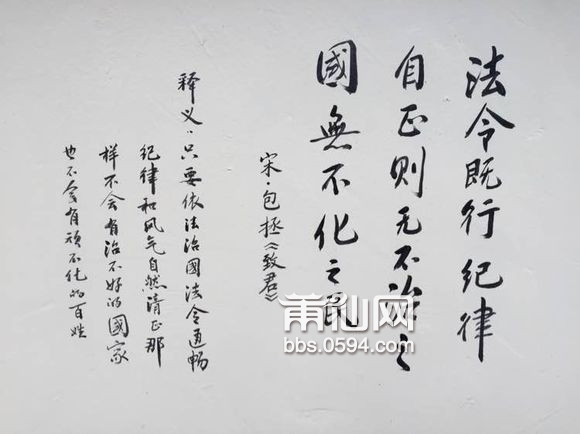 法令既行纪律
自正则无不治之
國無不化之民
宋·包拯《致君》
释义·只要依法治國法令通畅
纪律和风气自然清正那
样不会有治不好的國家
也不会有顽不化的百姓
莆仙网
bbs.0594.com